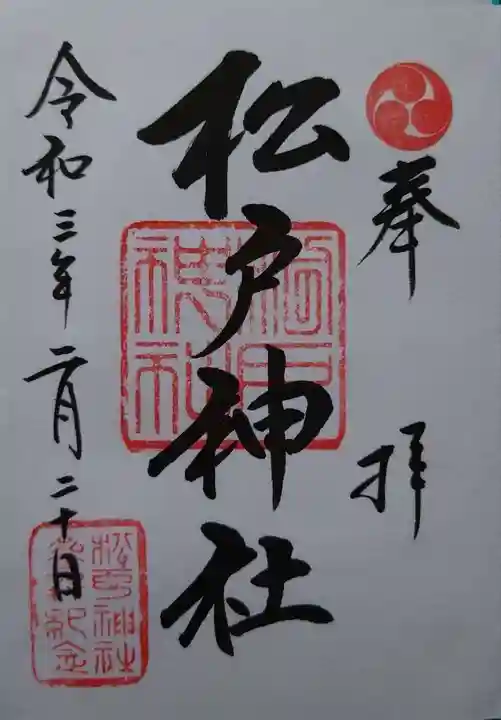 奉拝
松戸神社
令和三年二月二十日
松戸神社
松戸神社
参拝記念